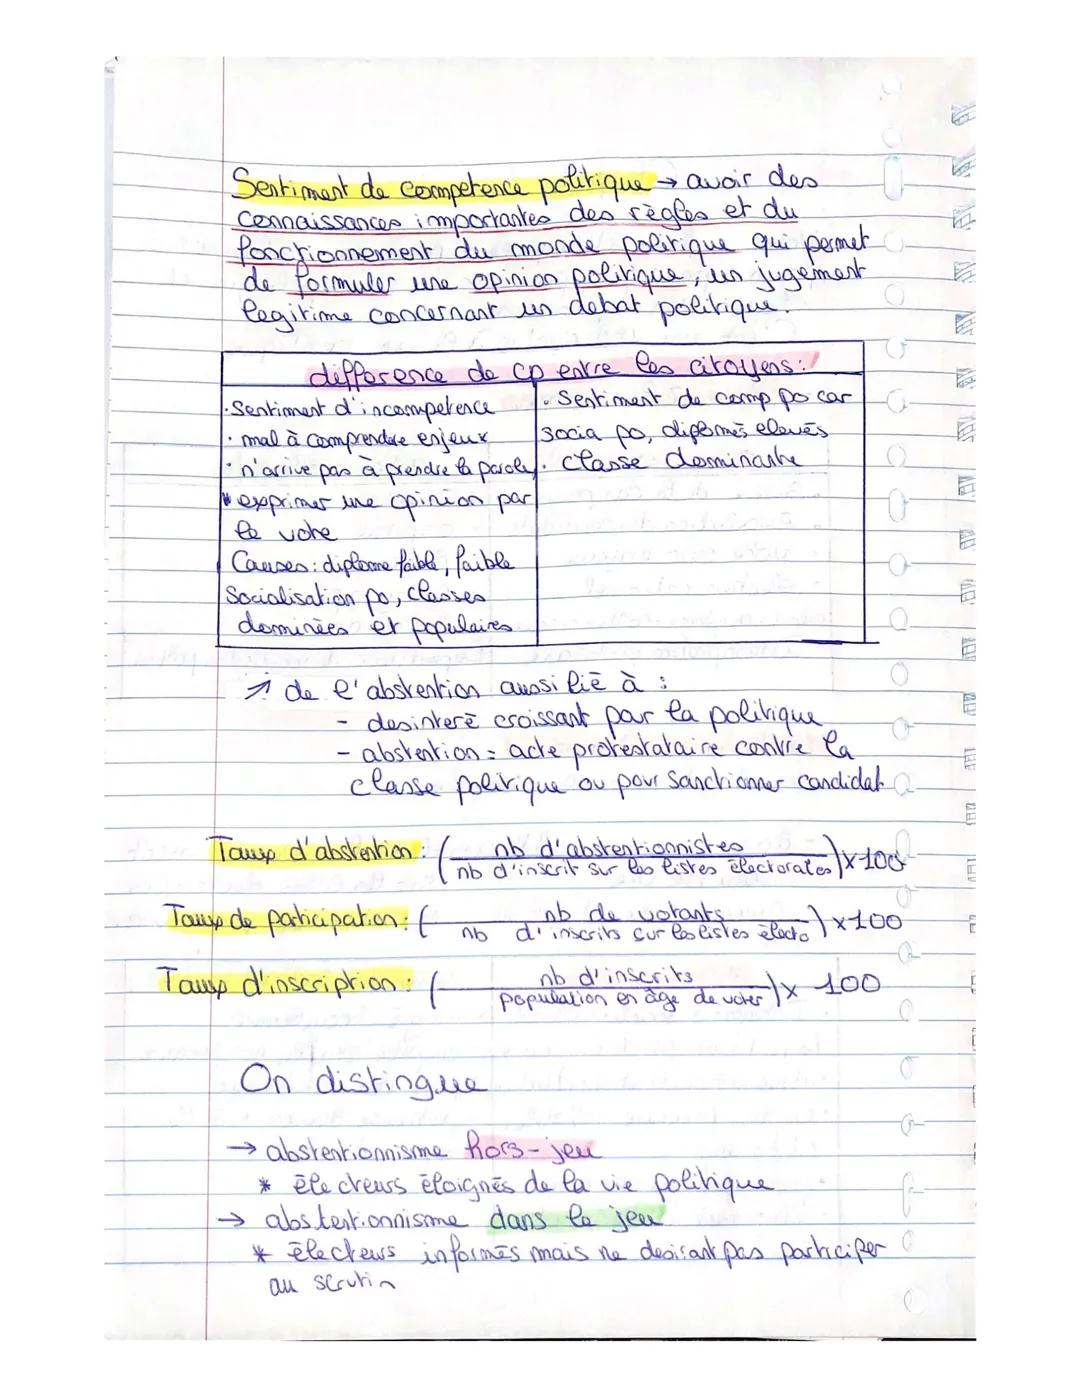 Sentiment de competence politique → avoir des
connaissances importantes des règles et du
fonctionnement du monde politique qui permet
de formuler une opinion politique, un jugement
legitime concernant un debat politique.
difference de cp entre les citoyens :
· Sentiment d'incompetence
· mal à comprendre enjeux
· n'arrive pas à prendre la parole
* exprimer une opinion par
le vote
Causes : diplome faible, faible
Socialisation po, classes
dominées et populaires
· Sentiment de comp po car
socia po, diplomés elevés
· Classe dominante
↗ de l'abstention aussi lié à :
- desinteré croissant pour la politique
- abstention = acte protestataire contre la
classe politique ou pour sanctionner candidat
Taux d'abstention : ( nb d'abstentionnistes
nb d'inscrit sur les listes électorales ) x 100
Taux de participation : ( nb de votants
nb d'inscrits sur les listes électo ) x 100
Taux d'inscription : ( nb d'inscrits
population en âge de voter ) x 100
On distingue
→ abstentionnisme hors-jeu
* électeurs éloignés de la vie politique
→ abstentionnisme dans le jeu
* électeurs informés mais ne desirant pas participer
au scrutin